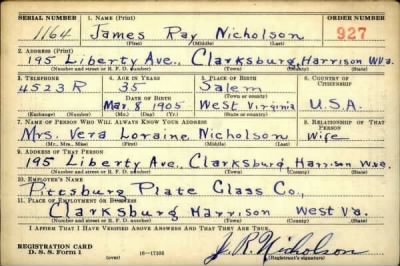 SERIAL NUMBER 1. NAME (Print) ORDER NUMBER
1164 James Ray Nicholson 927
(First) (Middle) (Last)
2. ADDRESS (Print)
195 Liberty Ave., Clarksburg, Harrison W.Va.
(Number and street or R. F. D. number) (Town) (County) (State)
3. TELEPHONE 4. AGE IN YEARS 5. PLACE OF BIRTH 6. COUNTRY OF CITIZENSHIP
4523 R 35 Salem
DATE OF BIRTH (Town or county)
Mar. 8 1905 West Virginia U.S.A.
(Exchange) (Number) (Mo.) (Day) (Yr.) (State or country)
7. NAME OF PERSON WHO WILL ALWAYS KNOW YOUR ADDRESS 8. RELATIONSHIP OF THAT PERSON
Mrs. Vera Loraine Nicholson Wife
(Mr., Mrs., Miss) (First) (Middle) (Last)
9. ADDRESS OF THAT PERSON
195 Liberty Ave., Clarksburg, Harrison W.Va.
(Number and street or R. F. D. number) (Town) (County) (State)
10. EMPLOYER'S NAME
Pittsburg Plate Glass Co.,
11. PLACE OF EMPLOYMENT OR BUSINESS
Clarksburg Harrison West Va.
(Number and street or R. F. D. number) (Town) (County) (State)
I AFFIRM THAT I HAVE VERIFIED ABOVE ANSWERS AND THAT THEY ARE TRUE.
REGISTRATION CARD
D. S. S. Form 1 (over) J. R. Nicholson
(Registrant's signature)